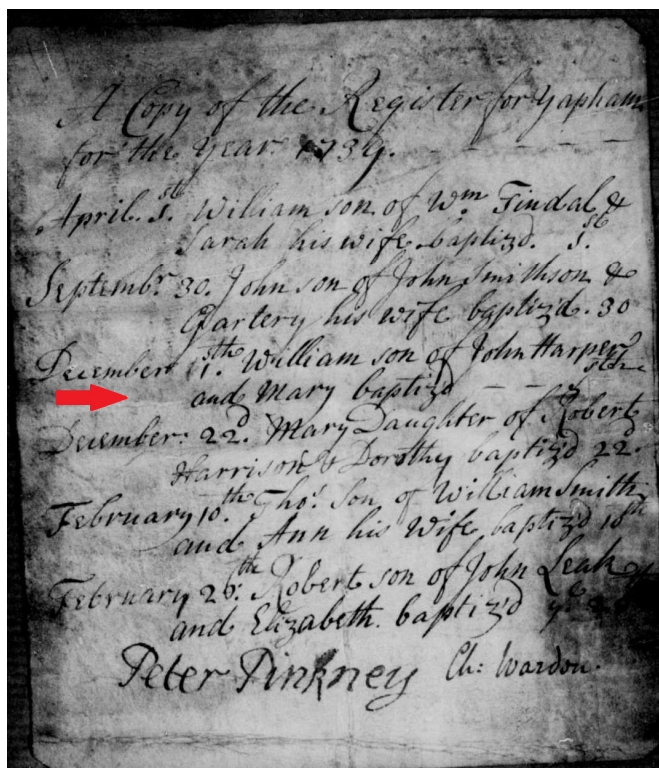 A Copy of the Register for Yapham
for the Year 1739.
April. 1st. William son of Wm Findal &
Sarah his wife baptizd. 1st
Septembr. 30. John son of John Smithson &
his wife baptizd. 30
December William son of John Harper
and Mary baptizd
December: 22d. Mary Daughter of Robert
Harrison & Dorothy baptizd 22d.
February 10th Thos. Son of William Smith
and Ann his Wife baptizd 10th
February 26th: Robert son of John Leak
and Elizabeth. baptiz'd ye
Peter Pinkney Ch: Wardon.